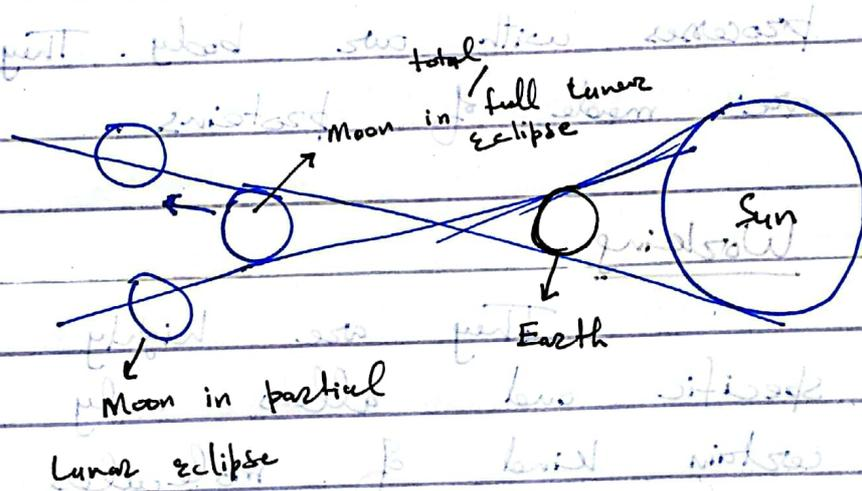 total /
Moon in full lunar
eclipse
Sun
Earth
Moon in partial
Lunar eclipse